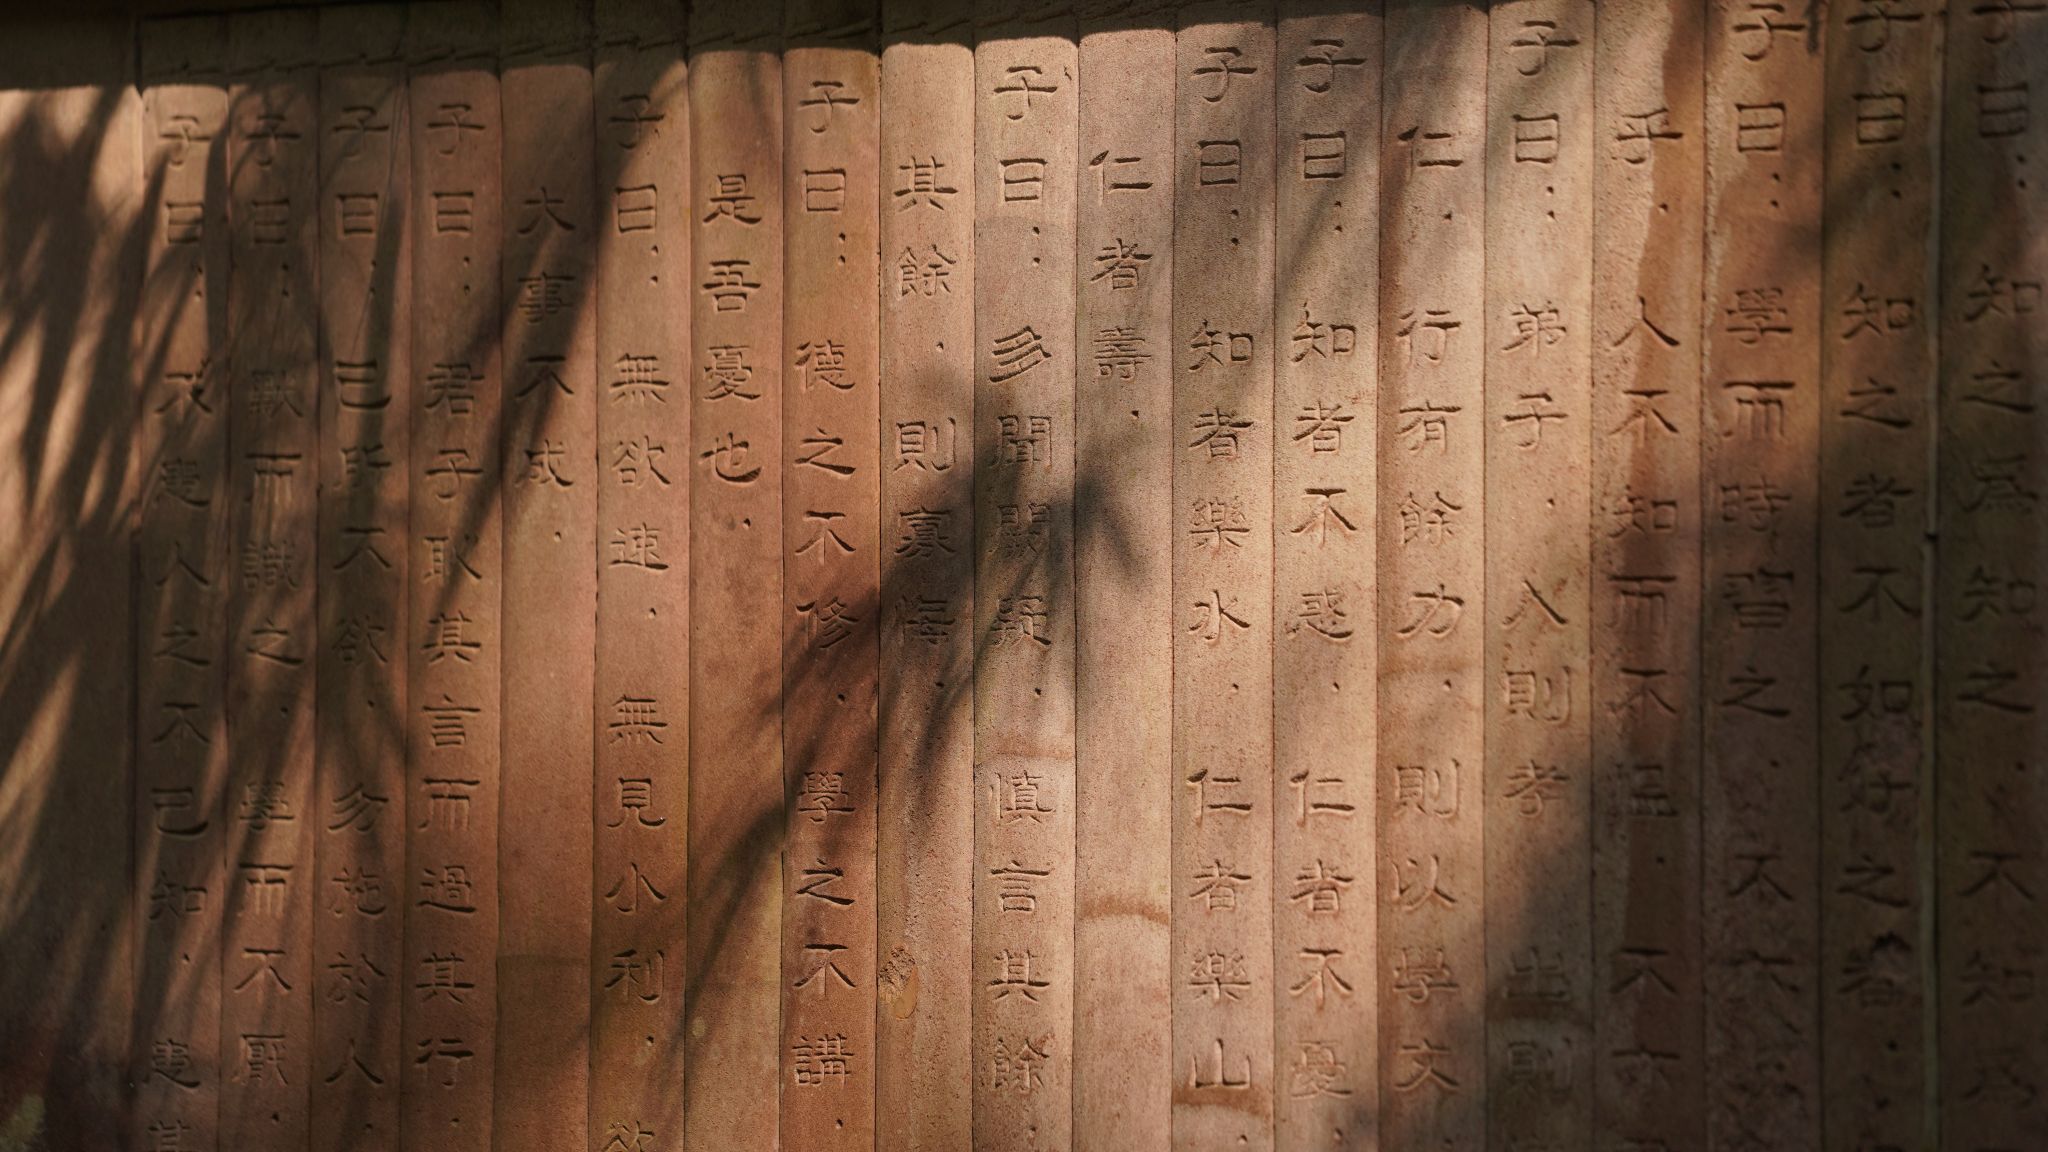 子曰：知之為知之．不知為
子曰：知之者不如好之者．
子曰：學而時習之．不亦
乎．人不知而不慍．不亦
子曰：弟子．入則孝 出則
仁．行有餘力．則以學文
子曰：知者不惑．仁者不憂
子曰：知者樂水．仁者樂山．
仁者壽．
子曰：多聞闕疑．慎言其餘．
其餘．則寡悔．
子曰：德之不修．學之不講．
是吾憂也．
子曰：無欲速．無見小利．欲
大事不成．
子曰：君子恥其言而過其行．
子曰：己所不欲．勿施於人．
子曰：默而識之．學而不厭．
子曰：不患人之不己知．患其